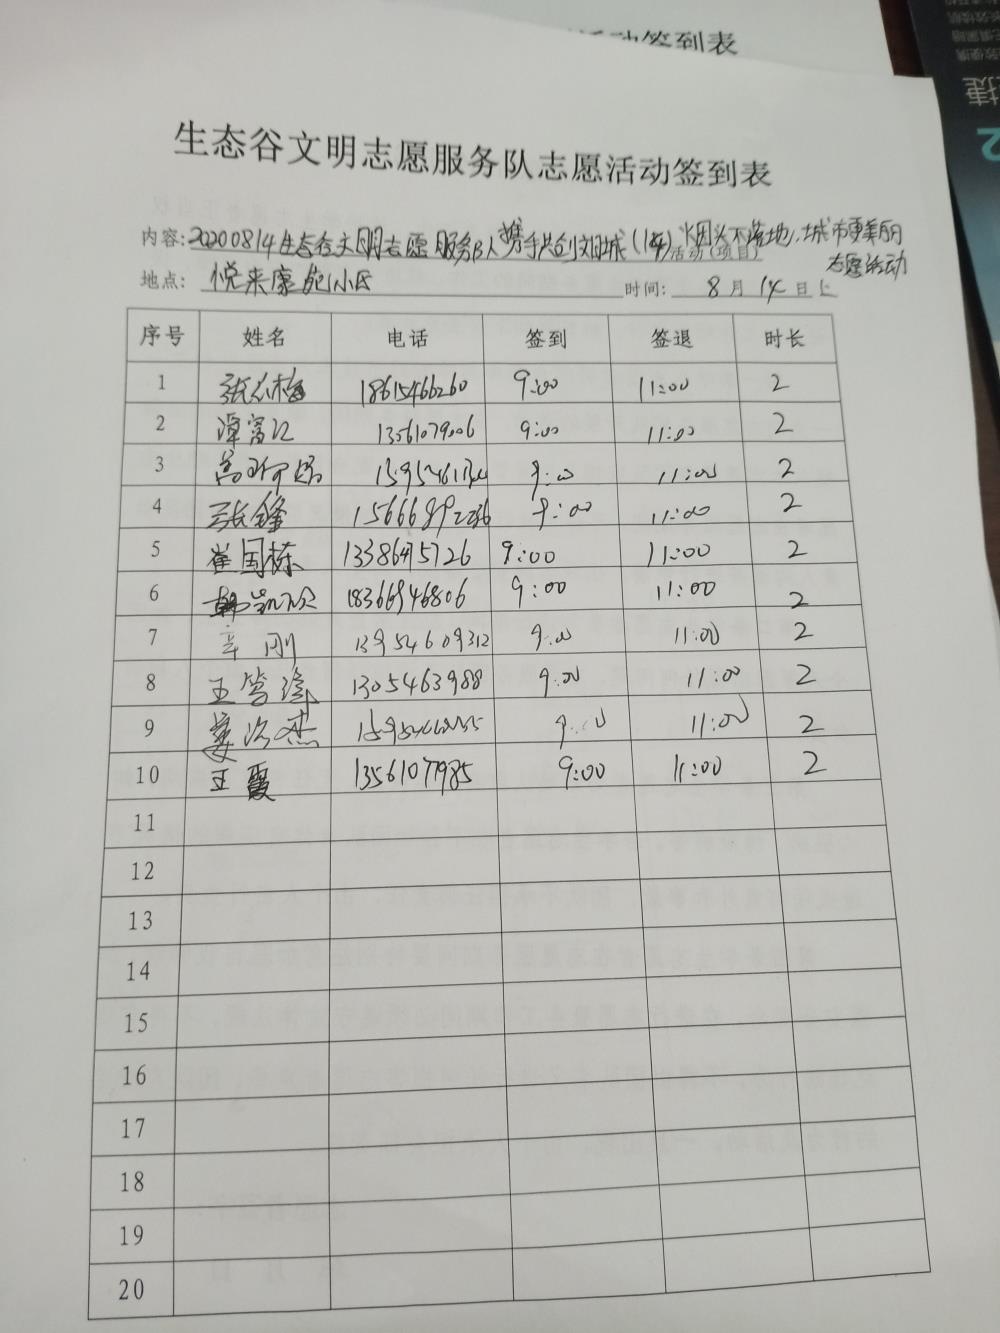 活动签到表
生态谷文明志愿服务队志愿活动签到表
内容:20200814生态谷文明志愿服务队携手共创文明城(14)"烟头不落地,城市更美丽 活动(项目)
志愿活动
地点: 悦来康苑小区 时间: 8 月 14 日上
序号 姓名 电话 签到 签退 时长
1 张 梅 18615466260 9:00 11:00 2
2 谭富江 13561079006 9:00 11:00 2
3 9:00 11:00 2
4 张锋 15666892236 9:00 11:00 2
5 崔国栋 13386475726 9:00 11:00 2
6 韩凯欣 18366946806 9:00 11:00 2
7 辛刚 13954609312 9:00 11:00 2
8 王 涛 13054639888 9:00 11:00 2
9 姜治杰 9:00 11:00 2
10 王霞 13561077985 9:00 11:00 2
11
12
13
14
15
16
17
18
19
20
捷
2